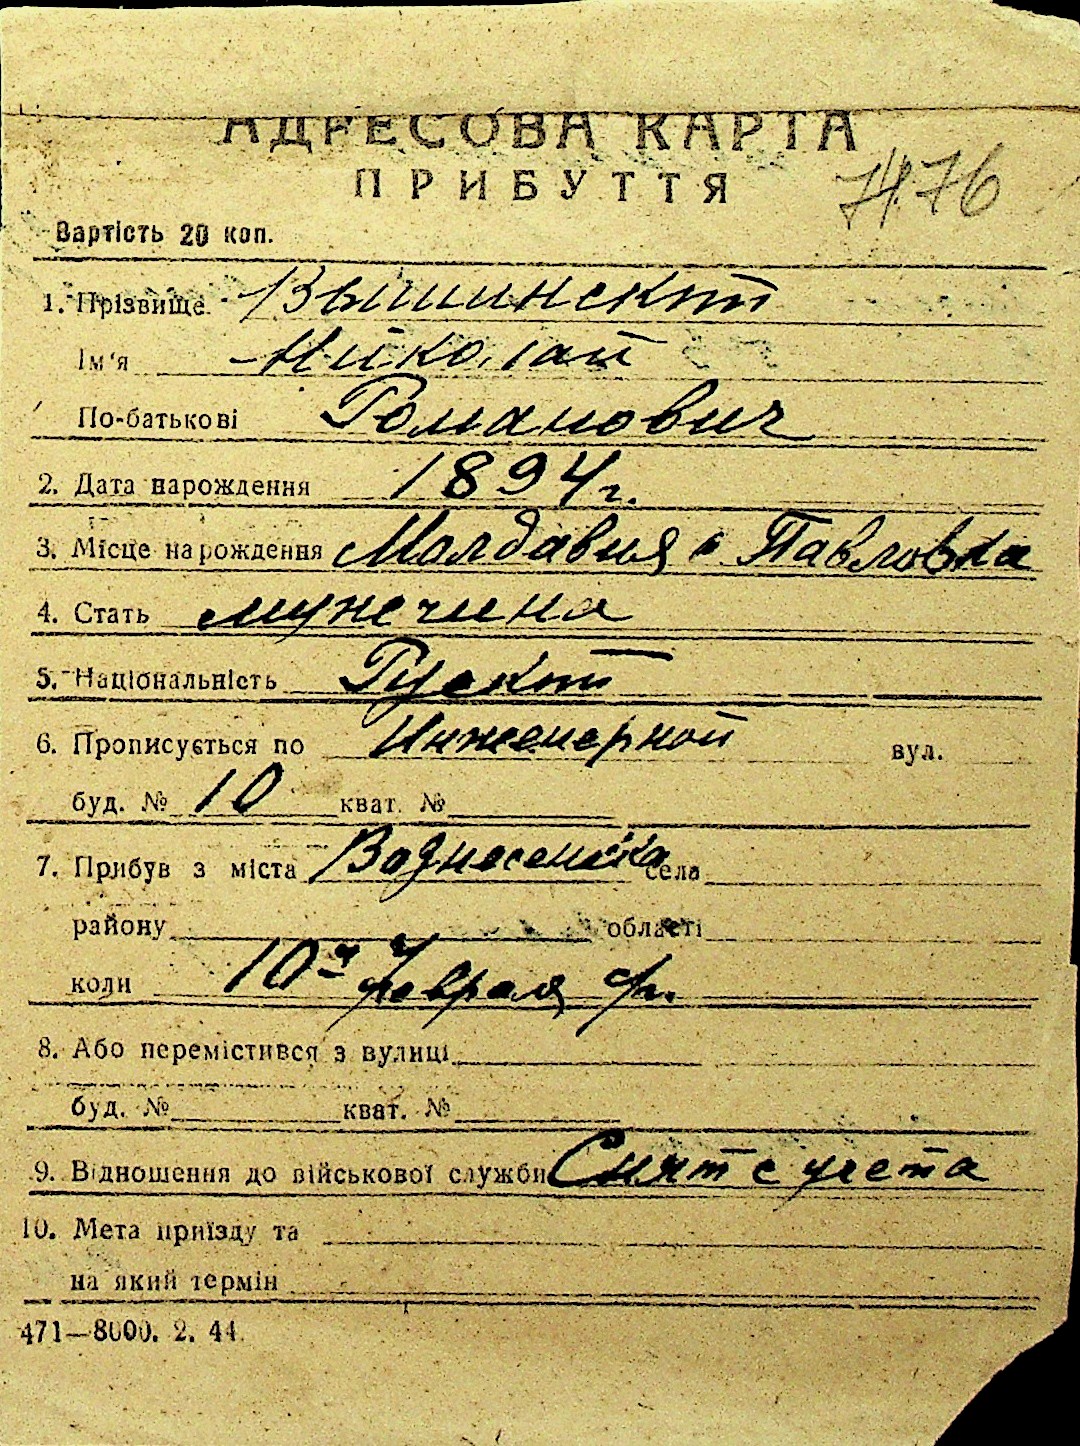 АДРЕСОВА КАРТА
ПРИБУТТЯ
7476
Вартість 20 коп.
1. Прізвище Вышинский
Ім'я Николай
По-батькові Романович
2. Дата народження 1894 г.
3. Місце народження Молдавия с Павловка
4. Стать мужчина
5. Національність Руский
6. Прописується по Инженерной вул.
буд. № 10 кват. №
7. Прибув з міста Вознесенска села
району області
коли 10 февраля
8. Або перемістився з вулиці
буд. № кват. №
9. Відношення до військової служби Снят с учета
10. Мета приїзду та
на який термін
471—8000. 2. 44.